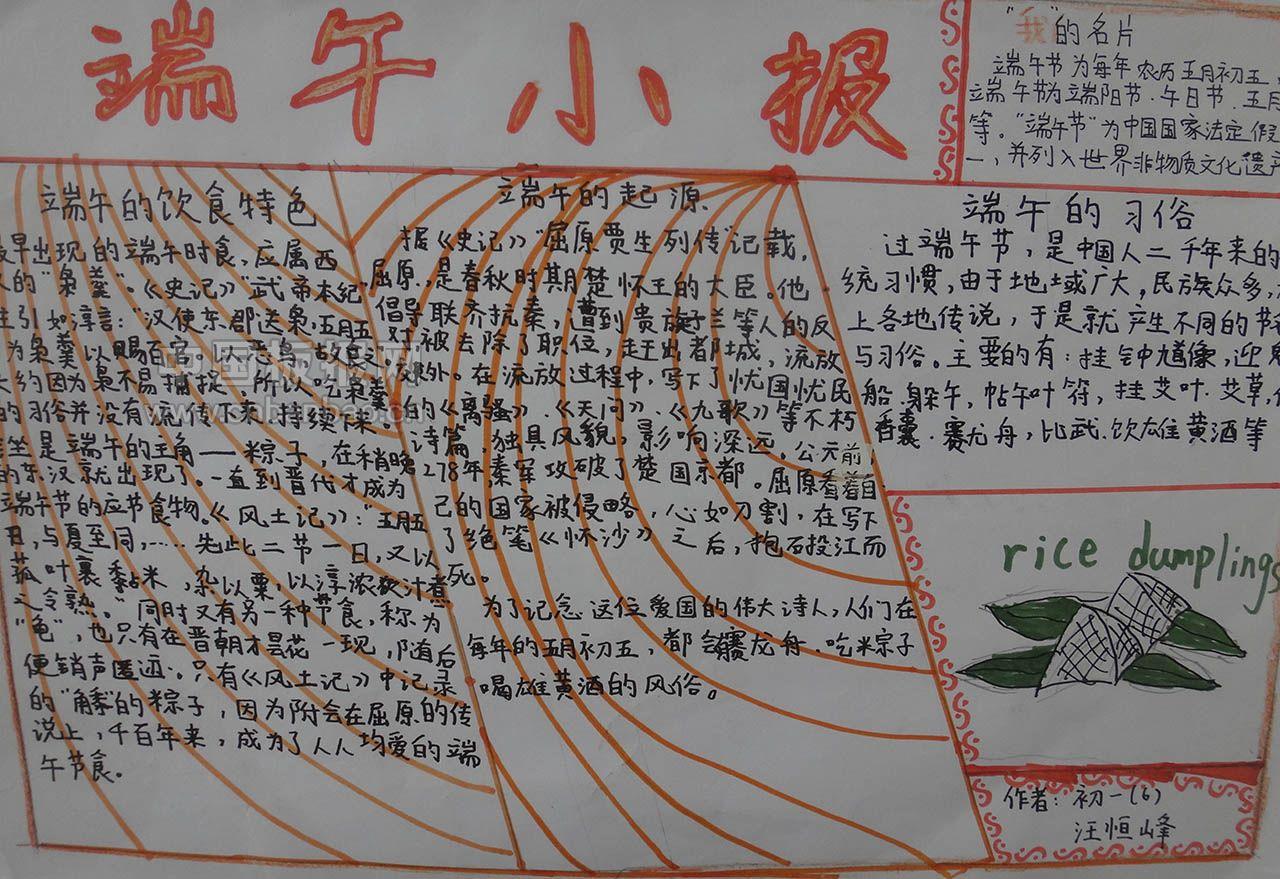 端午小报
"我"的名片
端午节为每年农历五月初五
端午节为端阳节、午日节、五月
等。"端午节"为中国国家法定假
一,并列入世界非物质文化遗产
端午的饮食特色
早出现的端午时食,应属西
的"枭羹"。《史记》"武帝本纪
引如淳言:"汉使东郡送枭,五月五
为枭羹以赐百官。以恶鸟,故食之
大约因为枭不易捕捉,所以吃枭羹
的习俗并没有流传下来持续下来。
坐是端午的主角——粽子,在稍晚
的东汉就出现了。一直到晋代才成为
端午节的应节食物。《风土记》:"五月五
日,与夏至同,……先此二节一日,又以
菰叶裹黏米,杂以粟,以淳浓灰汁煮
之令熟。"同时又有另一种节食,称为
"龟",也只有在晋朝才昙花一现,随后
便销声匿迹。只有《风土记》中记录
的"角黍"的粽子,因为附会在屈原的传
说上,千百年来,成为了人人均爱的端
午节食。
端午的起源
据《史记》"屈原贾生列传"记载,
屈原,是春秋时期楚怀王的大臣。他
倡导联齐抗秦,遭到贵族子兰等人的反
对,被去除了职位,赶出都城,流放
外。在流放过程中,写下了忧国忧民
的《离骚》、《天问》、《九歌》等不朽
诗篇,独具风貌,影响深远。公元前
278年,秦军攻破了楚国京都。屈原看着自
己的国家被侵略,心如刀割,在写下
了绝笔《怀沙》之后,抱石投江而
死。
为了记念这位爱国的伟大诗人,人们在
每年的五月初五,都会赛龙舟、吃米粽子
喝雄黄酒的风俗。
端午的习俗
过端午节,是中国人二千年来的
统习惯,由于地域广大,民族众多,
上各地传说,于是就产生不同的节
与习俗。主要的有:挂钟馗像,迎鬼
船、躲午,帖午叶符,挂艾叶、艾草,
香囊、赛龙舟,比武、饮雄黄酒等
rice dumplings
作者:初一(6)
汪恒峰
中国板报网
www.cnbanbao.cn